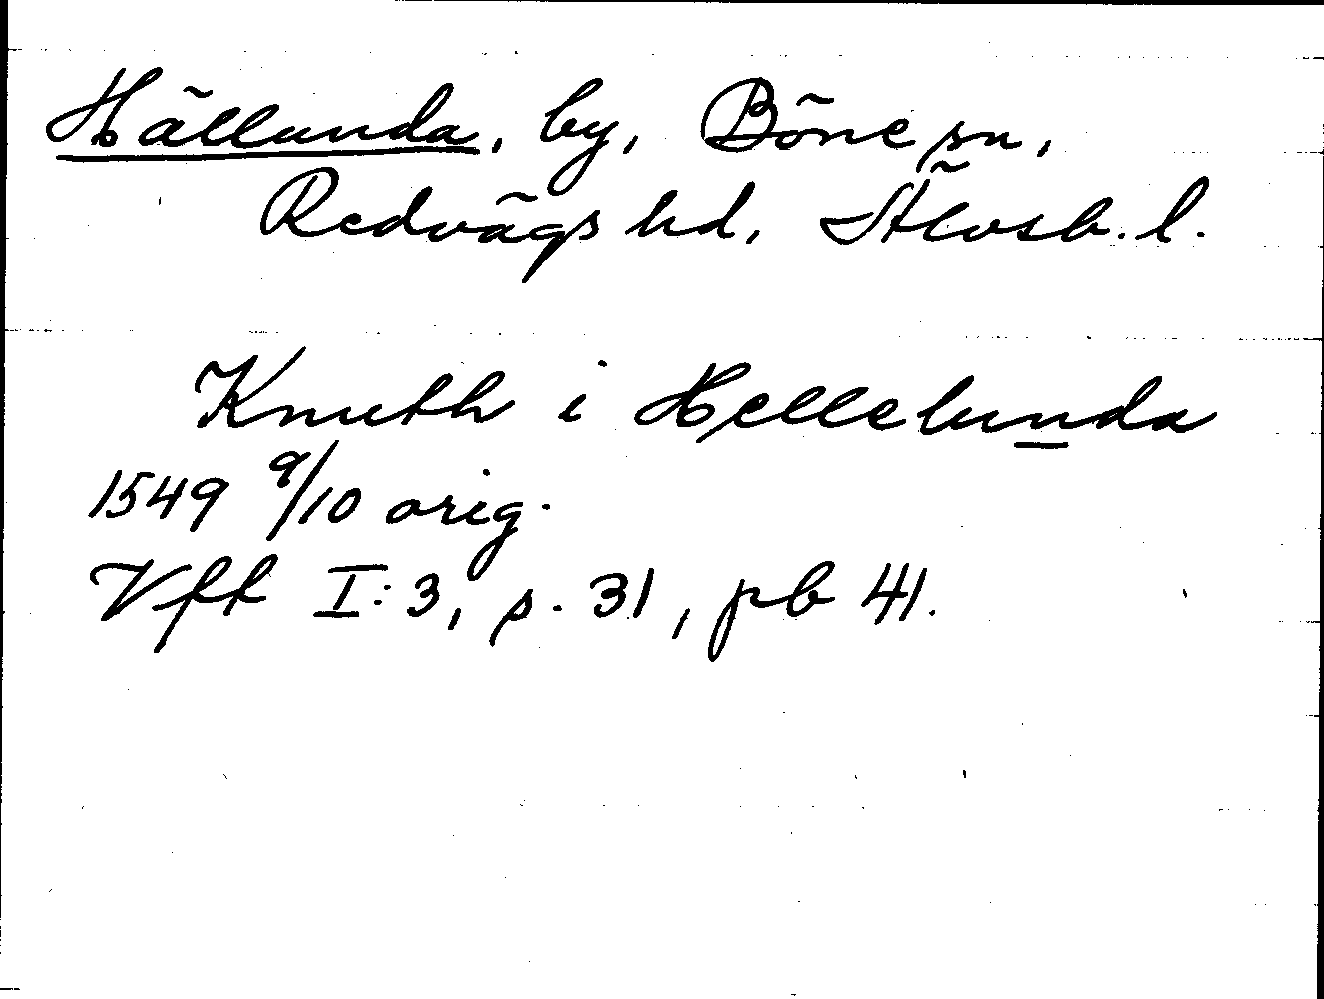 Hällunda, by, Böne sn,
Redvägs hd, Älvsb. l.
Knuth i Hellelunda
1549 9/10 orig.
Vfh I:3, s. 31, pb 41.